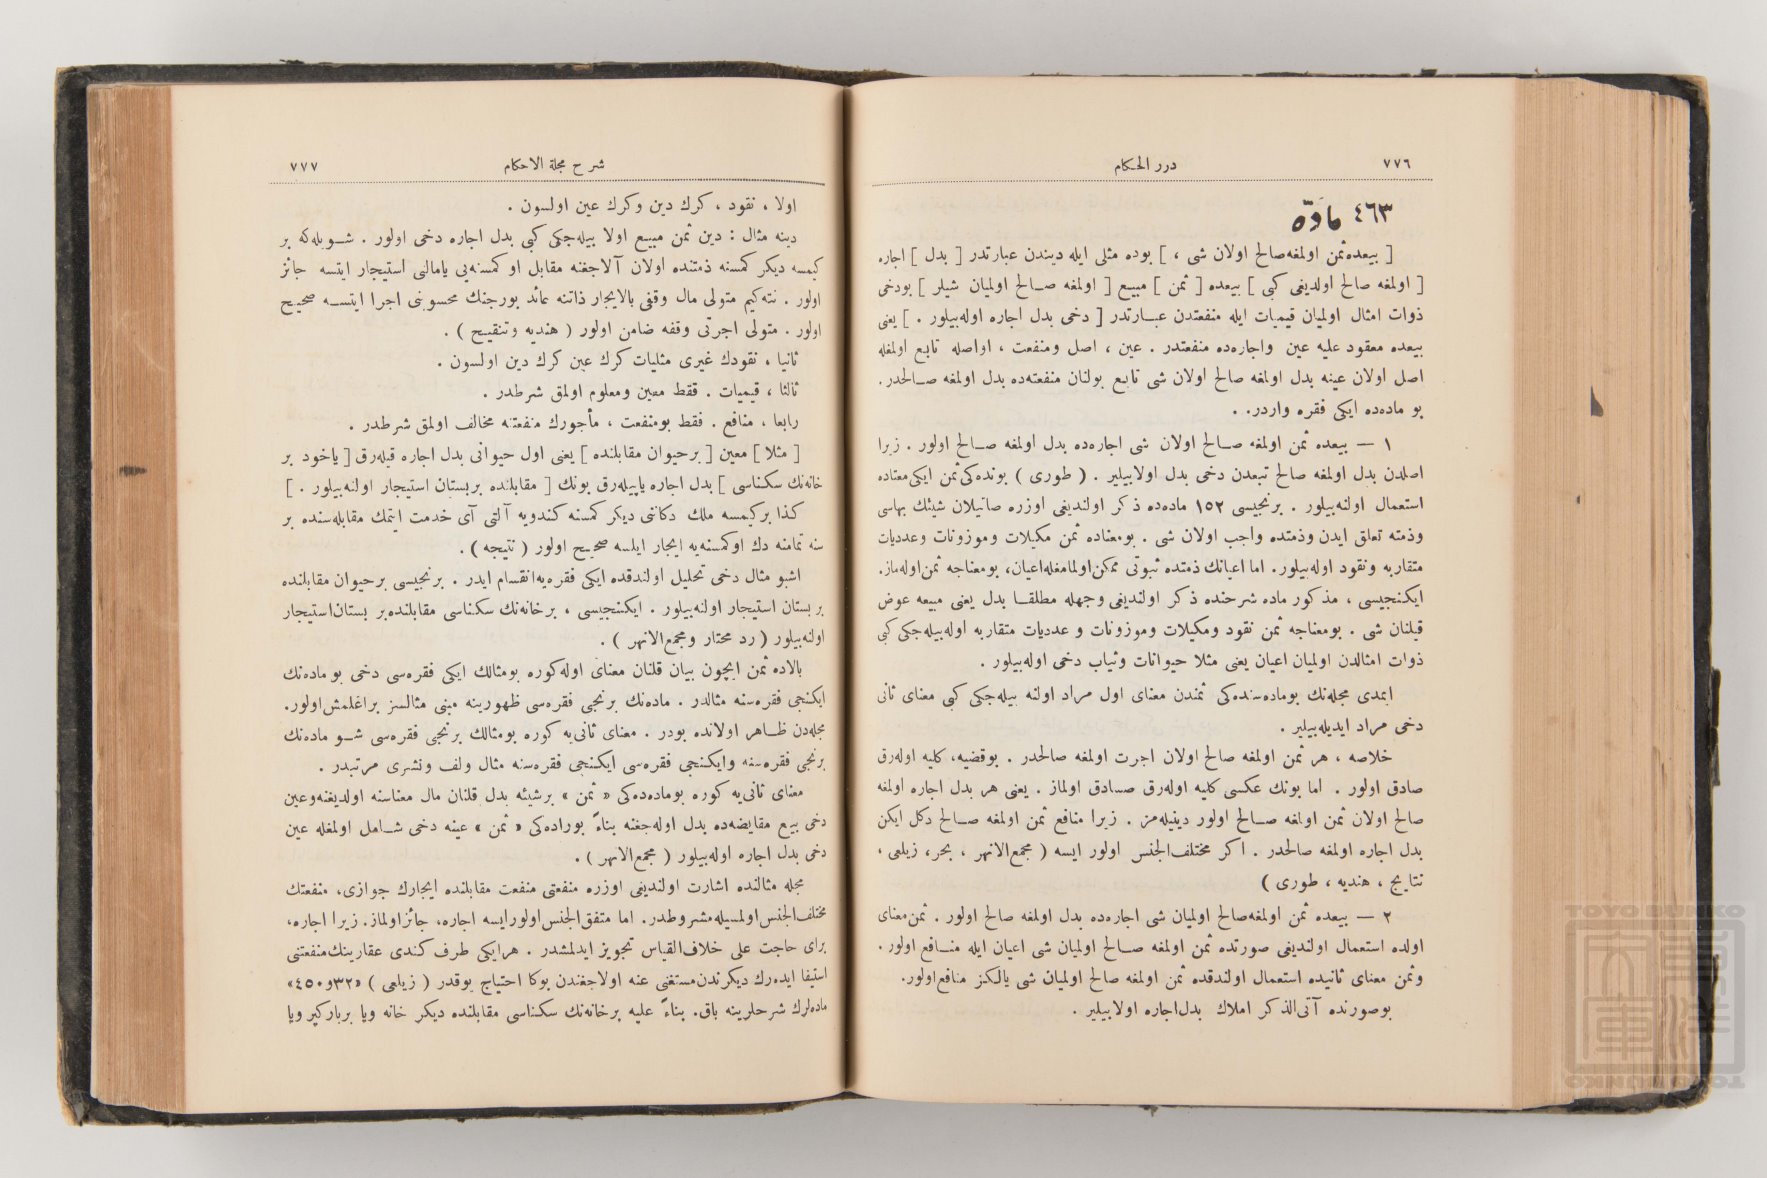 ٧٧٦
درر الحكام
٤٦٣ مادّه
[ بيعده ثمن اولمغه صالح اولان شی ، ] بوده مثلی ايله ديندن عبارتدر [ بدل ] اجاره
[ اولمغه صالح اولديغی كبی ] بيعده [ ثمن ] مبيع [ اولمغه صالح اولميان شيلر ] بودخی
ذوات امثال اولميان قيميات ايله منفعتدن عبارتدر [ دخی بدل اجاره اوله بيلور . ] يعنی
بيعده معقود عليه عين واجاره‌ده منفعتدر . عين ، اصل ومنفعت ، اواصله تابع اولمغله
اصل اولان عينه بدل اولمغه صالح اولان شی تابع بولنان منفعته‌ده بدل اولمغه صالحدر.
بو ماده‌ده ايكی فقره واردر. .
١ — بيعده ثمن اولمغه صالح اولان شی اجاره‌ده بدل اولمغه صالح اولور . زيرا
اصلدن بدل اولمغه صالح تبعدن دخی بدل اولابيلير . ( طوری ) بونده‌كی ثمن ايكی معناده
استعمال اولنه‌بيلور . برنجيسی ١٥٢ ماده‌ده ذكر اولنديغی اوزره صاتيلان شيئك بهاسی
وذمته تعلق ايدن وذمتده واجب اولان شی . بومعناده ثمن مكيلات وموزونات وعدديات
متقاربه ونقود اوله‌بيلور. اما اعيانك ذمتده ثبوتی ممكن اولمامغله اعيان، بومعناجه ثمن اوله‌ماز.
ايكنجيسی ، مذكور ماده شرحنده ذكر اولنديغی وجهله مطلقا بدل يعنی مبيعه عوض
قيلنان شی . بومعناجه ثمن نقود ومكيلات وموزونات و عدديات متقاربه اوله‌بيله‌جكی كبی
ذوات امثالدن اولميان اعيان يعنی مثلا حيوانات وثياب دخی اوله‌بيلور .
ايمدی مجله‌نك بوماده‌سنده‌كی ثمندن معنای اول مراد اولنه بيله‌جكی كبی معنای ثانی
دخی مراد ايديله‌بيلير .
خلاصه ، هر ثمن اولمغه صالح اولان اجرت اولمغه صالحدر . بوقضيه، كليه اوله‌رق
صادق اولور . اما بونك عكسی كليه اوله‌رق صادق اولماز . يعنی هر بدل اجاره اولمغه
صالح اولان ثمن اولمغه صالح اولور دينيله‌مز . زيرا منافع ثمن اولمغه صالح دكل ايكن
بدل اجاره اولمغه صالحدر . اكر مختلف‌الجنس اولور ايسه ( مجمع‌الانهر ، بحر، زيلعی ،
نتايج ، هنديه ، طوری )
٢ — بيعده ثمن اولمغه صالح اولميان شی اجاره‌ده بدل اولمغه صالح اولور . ثمن معنای
اولده استعمال اولنديغی صورتده ثمن اولمغه صالح اولميان شی اعيان ايله منافع اولور .
وثمن معنای ثانيده استعمال اولندقده ثمن اولمغه صالح اولميان شی يالكز منافع اولور.
بوصورتده آتی‌الذكر املاك بدل اجاره اولابيلير .
شرح مجلة الاحكام
٧٧٧
اولا ، نقود ، كرك دين وكرك عين اولسون .
دينه مثال : دين ثمن مبيع اولا بيله‌جكی كبی بدل اجاره دخی اولور . شويله‌كه بر
كيمسه ديكر كمسنه ذمتنده اولان آلاجغنه مقابل او كمسنه‌يی يامالنی استيجار ايتسه جائز
اولور . نته‌كيم متولی مال وقفی بالايجار ذاتنه عائد بورجنك محسوبنی اجرا ايتسه صحيح
اولور . متولی اجرتی وقفه ضامن اولور ( هنديه وتنقيح ) .
ثانيا ، نقودك غيری مثليات كرك عين كرك دين اولسون .
ثالثا ، قيميات . فقط معين ومعلوم اولمق شرطدر .
رابعا ، منافع . فقط بومنفعت ، مأجورك منفعتنه مخالف اولمق شرطدر .
[ مثلا ] معين [ برحيوان مقابلنده ] يعنی اول حيوانی بدل اجاره قيله‌رق [ ياخود بر
خانه‌نك سكناسی ] بدل اجاره ياپيله‌رق بونك [ مقابلنده بربستان استيجار اولنه‌بيلور . ]
كذا بركيمسه ملك دكاننی ديكر كمسنه كندويه آلتی آی خدمت ايتمك مقابله‌سنده بر
سنه تمامنه دك اوكمسنه‌يه ايجار ايلسه صحيح اولور ( نتيجه ) .
اشبو مثال دخی تحليل اولندقده ايكی فقره‌يه انقسام ايدر . برنجيسی برحيوان مقابلنده
بر بستان استيجار اولنه‌بيلور . ايكنجيسی ، برخانه‌نك سكناسی مقابلنده بر بستان استيجار
اولنه‌بيلور ( رد محتار ومجمع‌الانهر ) .
بالاده ثمن ايچون بيان قلنان معنای اوله‌كوره بومثالك ايكی فقره‌سی دخی بو ماده‌نك
ايكنجی فقره‌سنه مثالدر . ماده‌نك برنجی فقره‌سی ظهورينه مبنی مثالسز براغلمش اولور.
مجله‌دن ظاهر اولانده بودر . معنای ثانی‌يه كوره بومثالك برنجی فقره‌سی شو ماده‌نك
برنجی فقره‌سنه وايكنجی فقره‌سی ايكنجی فقره‌سنه مثال ولف ونشری مرتبدر .
معنای ثانی‌يه كوره بوماده‌ده‌كی « ثمن » برشيئه بدل قلنان مال معناسنه اولديغنه وعين
دخی بيع مقايضه‌ده بدل اوله‌جغنه بناءً بوراده‌كی « ثمن » عينه دخی شامل اولمغله عين
دخی بدل اجاره اوله‌بيلور ( مجمع‌الانهر ) .
مجله مثالنده اشارت اولنديغی اوزره منفعتی منفعت مقابلنده ايجارك جوازی، منفعتك
مختلف‌الجنس اولمسيله مشروطدر. اما متفق‌الجنس اولورايسه اجاره، جائزاولماز. زيرا اجاره،
برای حاجت علی خلاف‌القياس تجويز ايدلمشدر . هرايكی طرف كندی عقارينك منفعتنی
استيفا ايده‌رك ديكرندن مستغنی عنه اولاجغندن بوكا احتياج يوقدر ( زيلعی ) «٣٢و٤٥٠»
ماده‌لرك شرحلرينه باق. بناءً عليه برخانه‌نك سكناسی مقابلنده ديكر خانه ويا برباركير ويا
TOYO BUNKO
TOYO BUNKO